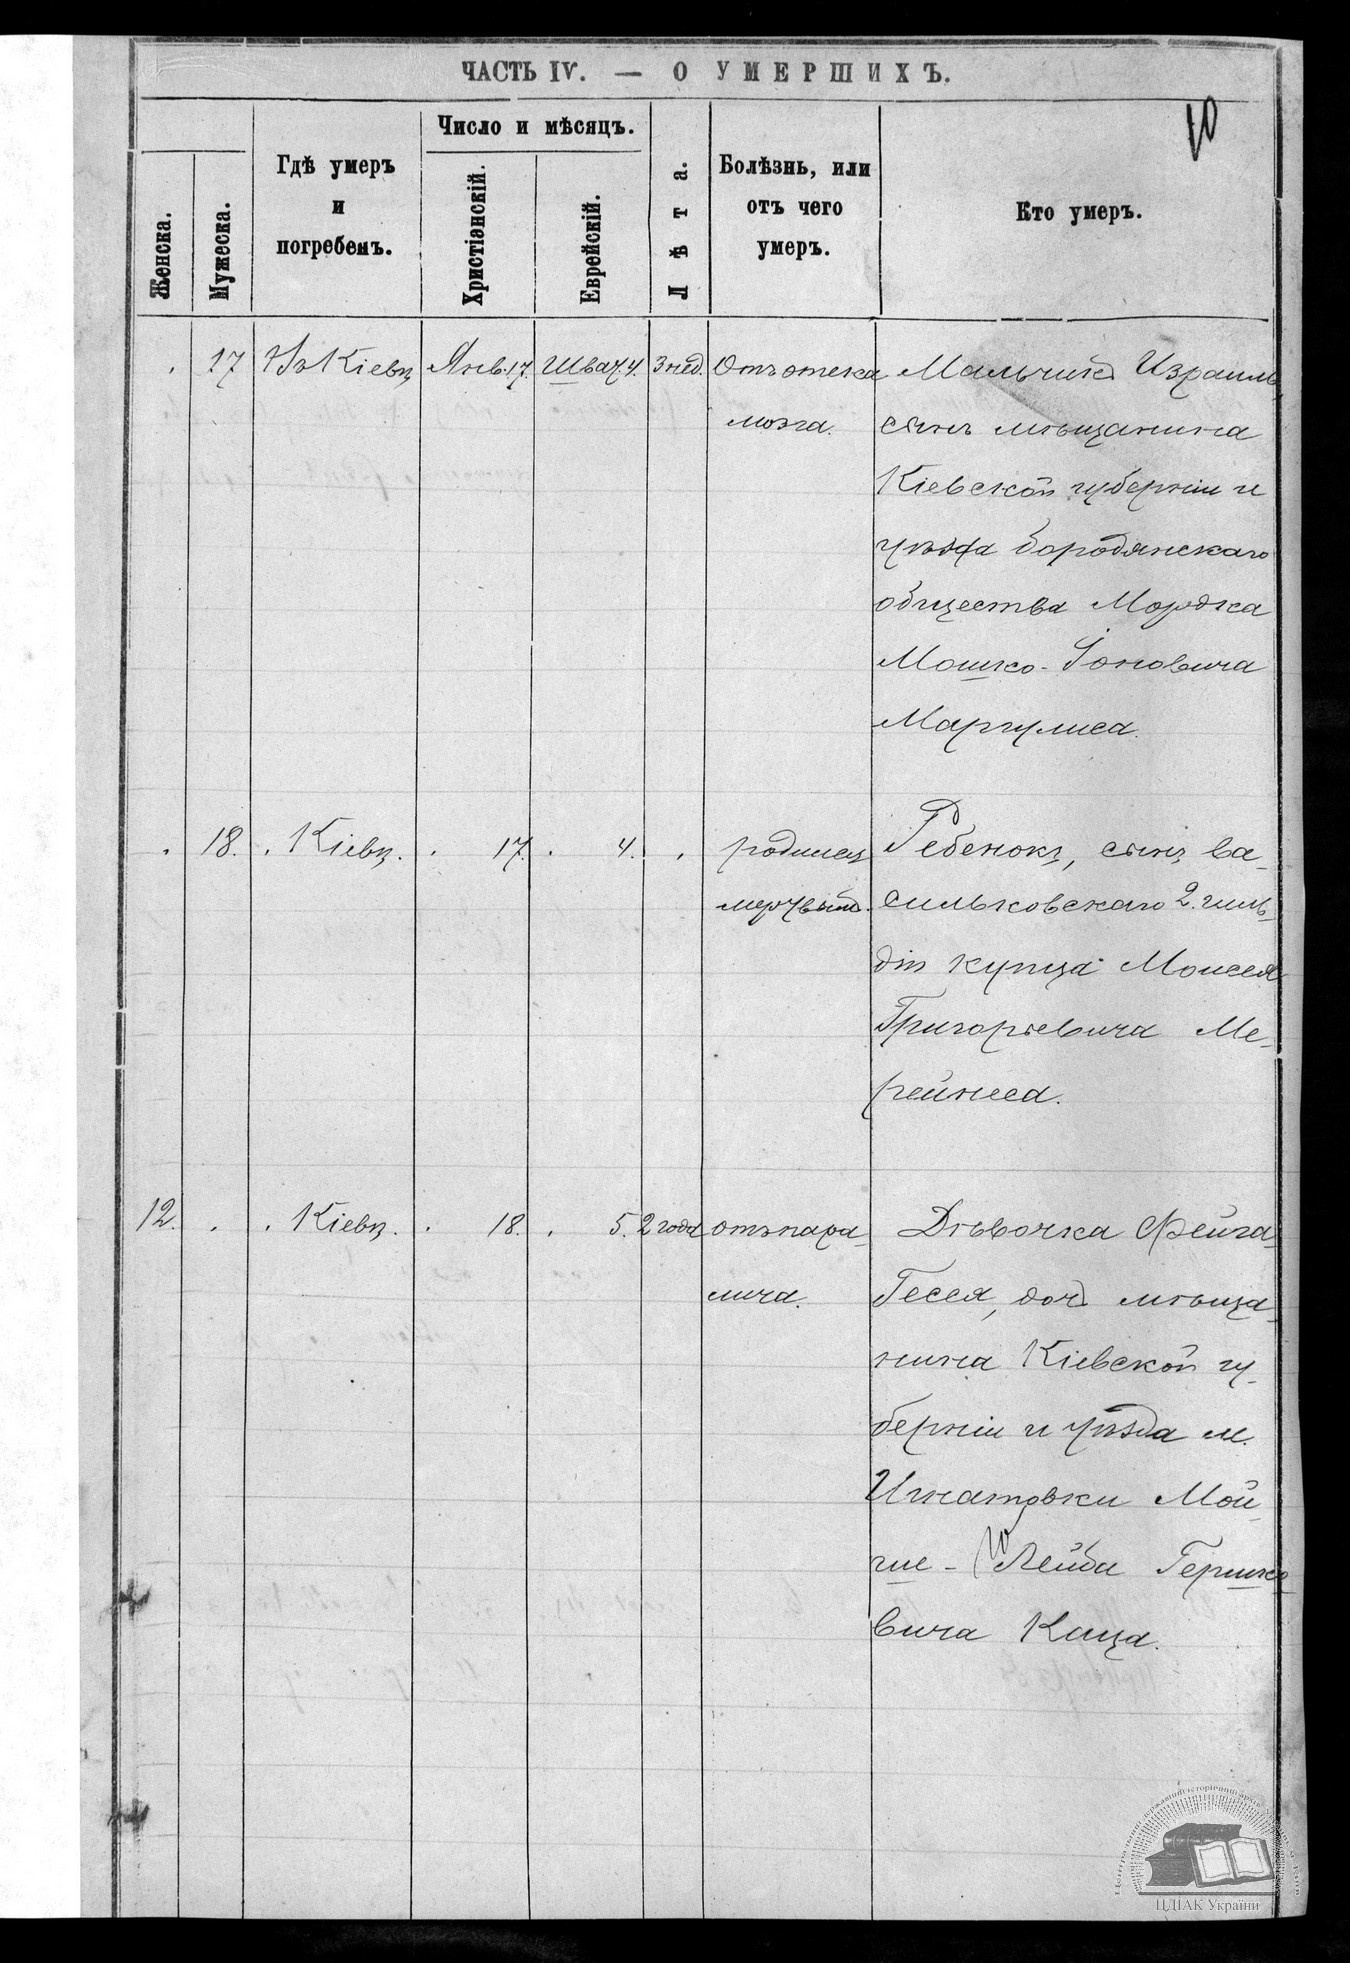 ЧАСТЬ IV. — О УМЕРШИХЪ.
10
Женска.
Мужеска.
Гдѣ умеръ
и
погребенъ.
Число и мѣсяцъ.
Христіанскій.
Еврейскій.
Лѣта.
Болѣзнь, или
отъ чего
умеръ.
Кто умеръ.
17 Въ Кіевѣ Янв. 17. Шват. 4. 3 нед. Отъ отека Мальчикъ Израиль
мозга. сынъ мѣщанина
Кіевской губерніи и
уѣзда бородянскаго
общества Мордка
Мошко-Іоновича
Маргулиса.
18. Кіевѣ. 17. 4. родился Ребенокъ, сынъ ва-
мертвый. сильковскаго 2. гиль-
діи купца Моисея
Григорьевича Ме-
рейнеса.
12. Кіевѣ. 18. 5. 2 года отъ пара- Дѣвочка Фейга-
лича. Гесея, дочь мѣща-
нина Кіевской гу-
берніи и уѣзда м.
Игнатовки Мой-
ше-Лейба Гершко
вича Каца.
ЦДІАК України